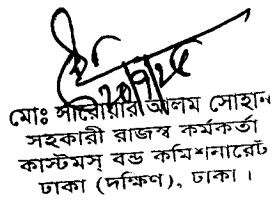 মোঃ সারোয়ার আলম সোহান
সহকারী রাজস্ব কর্মকর্তা
কাস্টমস্ বন্ড কমিশনারেট
ঢাকা (দক্ষিণ), ঢাকা ।